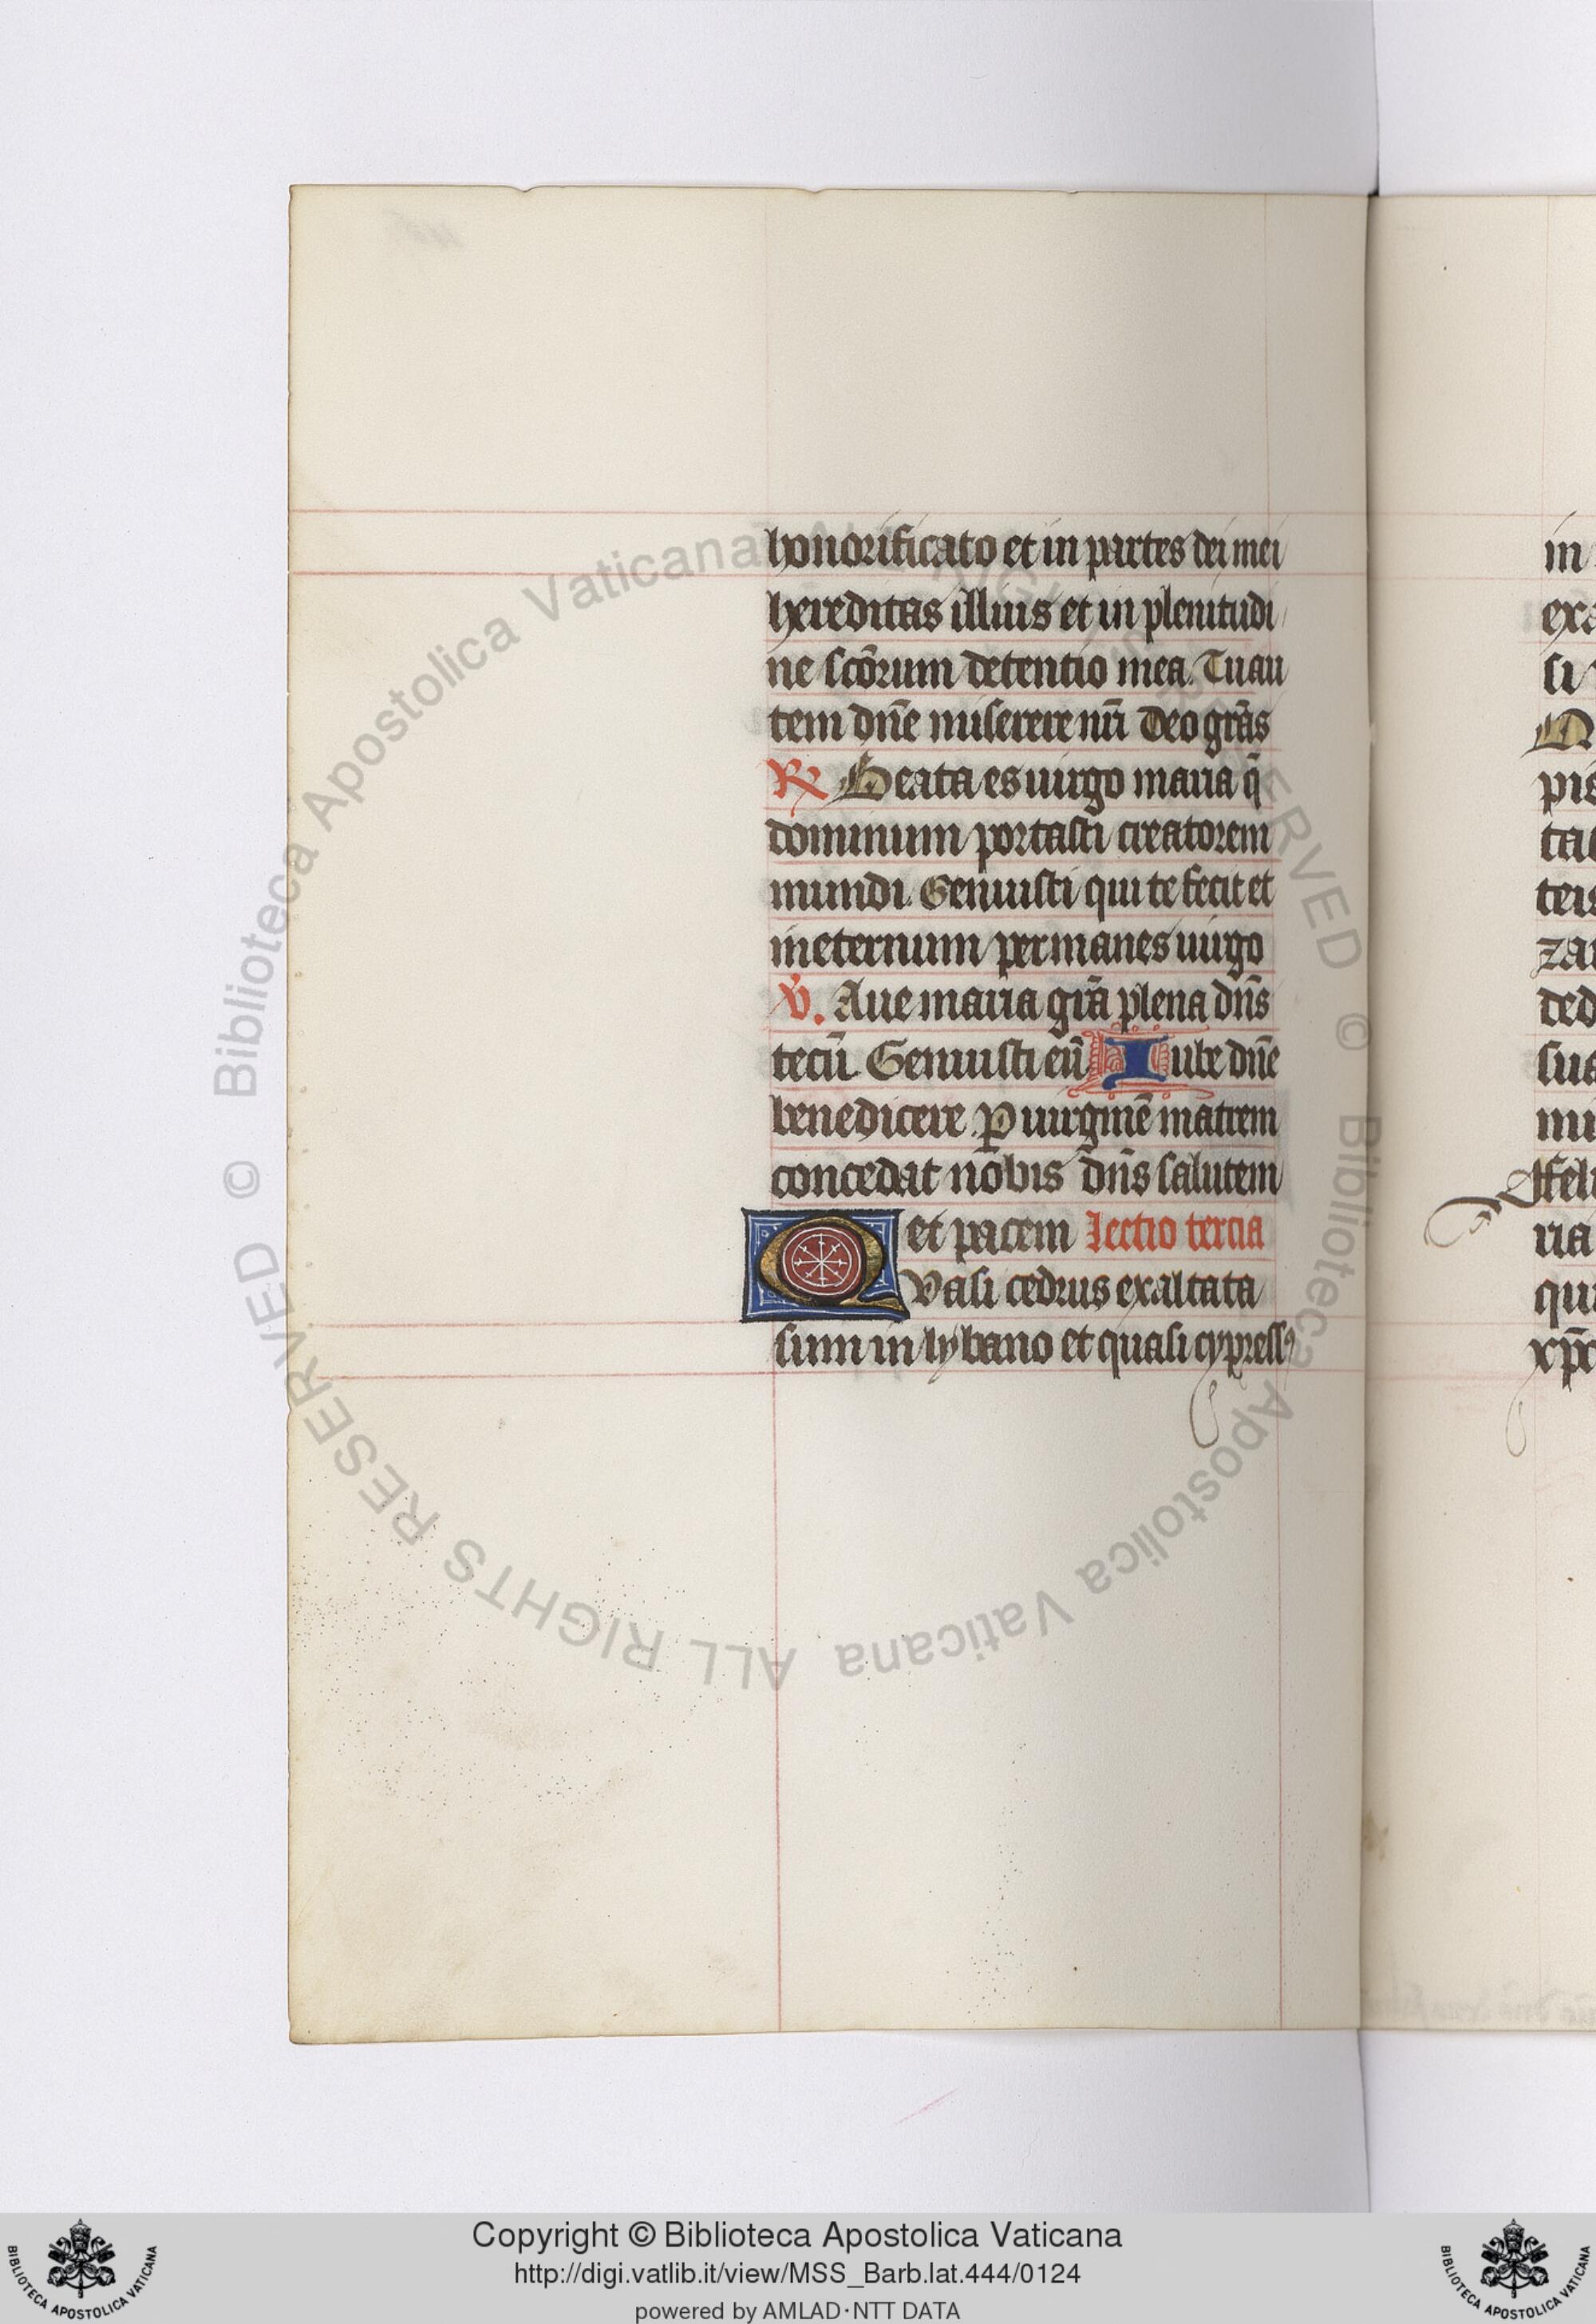 honorificato et in partes dei mei
hereditas illius et in plenitudi
ne scōrum detentio mea. Tu au
tem dn̄e miserere nr̄i Deo grās
R Beata es uirgo maria q̄
dominum portasti creatorem
mundi. Genuisti qui te fecit et
in eternum permanes uirgo
V. Aue maria grā plena dn̄s
tecū Genuisti eū Iube dn̄e
benedicere P uirginē matrem
concedat nobis dn̄s salutem
et pacem lectio tercia
Quasi cedrus exaltata
sum in lybano et quasi cypressꝰ
in
exa
si
pis
tas
teis
zai
ded
sus
mi
ria
qui
xp̄e
© Biblioteca Apostolica Vaticana ALL RIGHTS RESERVED © Biblioteca Apostolica Vaticana ALL RIGHTS RESERVED
BIBLIOTECA APOSTOLICA VATICANA
Copyright © Biblioteca Apostolica Vaticana
http://digi.vatlib.it/view/MSS_Barb.lat.444/0124
powered by AMLAD·NTT DATA
BIBLIOTECA APOSTOLICA VATICANA